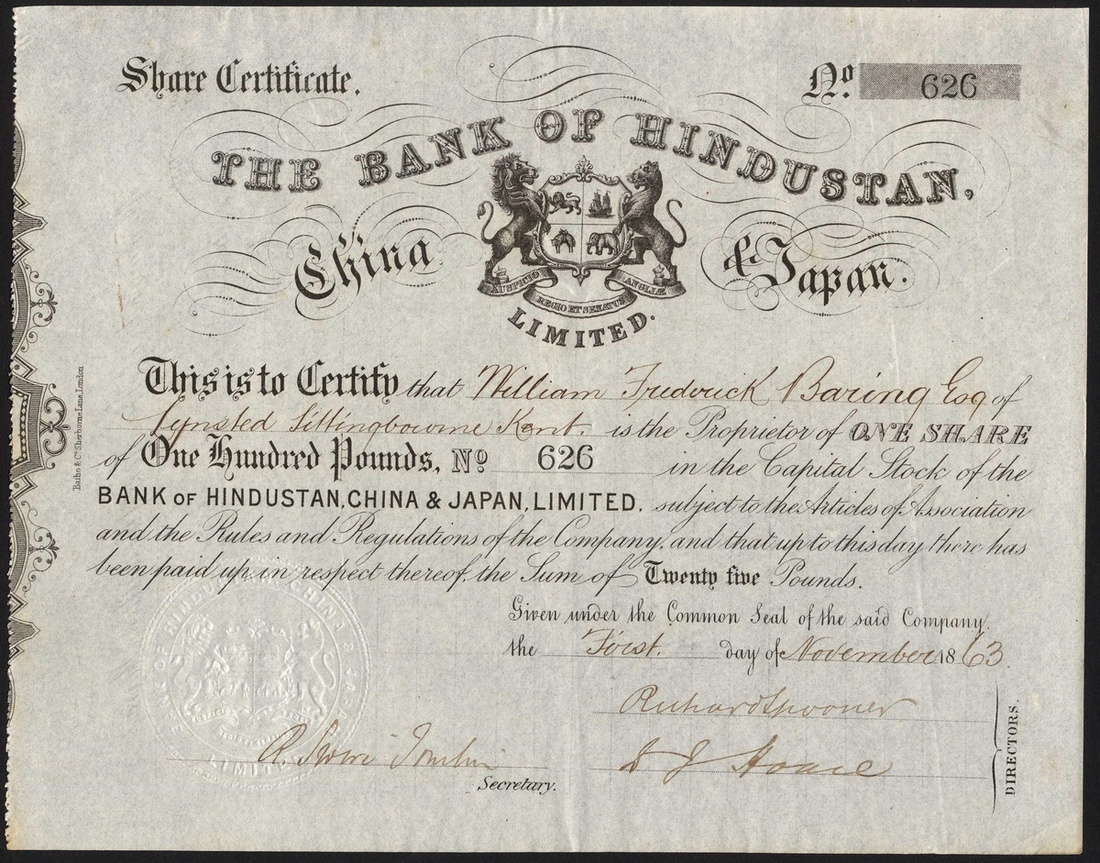 Share Certificate.
No. 626
THE BANK OF HINDUSTAN,
China & Japan.
AUSPICIO REGIO ET SENATUS ANGLIÆ
LIMITED.
This is to Certify that William Fredrick Baring Esq of
Lynsted Sittingbourne Kent. is the Proprietor of ONE SHARE
of One Hundred Pounds, No 626 in the Capital Stock of the
BANK OF HINDUSTAN, CHINA & JAPAN, LIMITED. subject to the Articles of Association
and the Rules and Regulations of the Company, and that up to this day there has
been paid up in respect thereof, the Sum of Twenty five Pounds.
Given under the Common Seal of the said Company.
the First. day of November 1863
Richard Spooner
DIRECTORS.
Secretary.
BANK OF HINDUSTAN CHINA & JAPAN
LIMITED
Batho & Co. Sherborne Lane, London